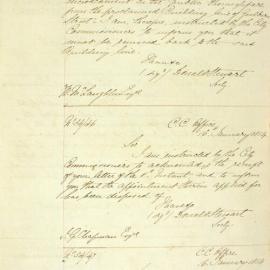 encroachment on the public thoroughfare
from the proclaimed Building line of
Street - I am, however, instructed by the City
Commissioners to inform you that it
must be removed back to the said
Building line.
I have &c
(sg) Donald Stewart
Secty
W. McLaughlin Esqre
No 54/46 C.C. Office
16 January 1854
Sir
I am instructed by the City
Commissioners to acknowledge the receipt
of your letter of the instant and to inform
you that the appointment therein applied for
has been disposed of
I have &c
(sg) Donald Stewart
Secty
Chapman Esqre
No 54/47 C.C. Office
January 1854